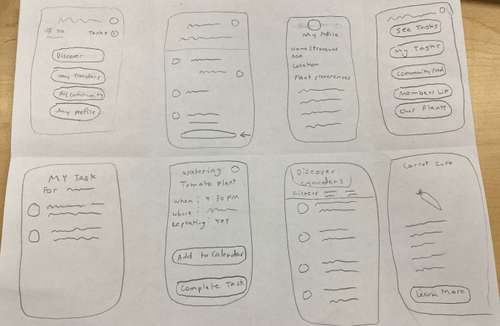 Tasks
Discover
My Gardens
My Community
My Profile
My Profile
Name/Pronouns
Age
Location
Plant Preferences
See Tasks
My Tasks
Community Feed
Members List
Our Plants
MY Task
For
Watering
Tomato Plant
When: 4:30 PM
Where:
Repeating: Yes
Add to Calendar
Complete Task
Discover
Gardens
Filters
Carrot Info
Learn More